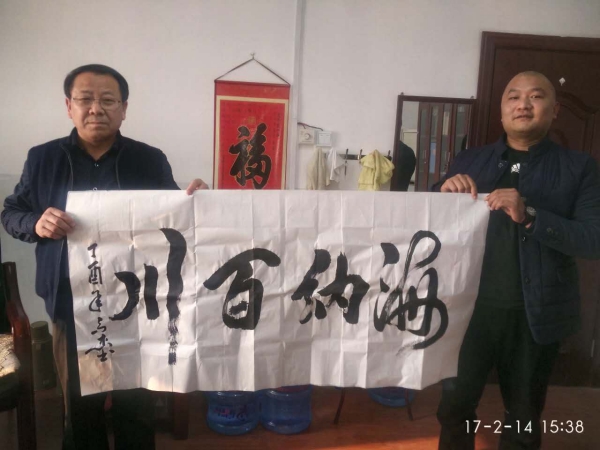 福
海纳百川
丁酉年
17-2-14 15:38